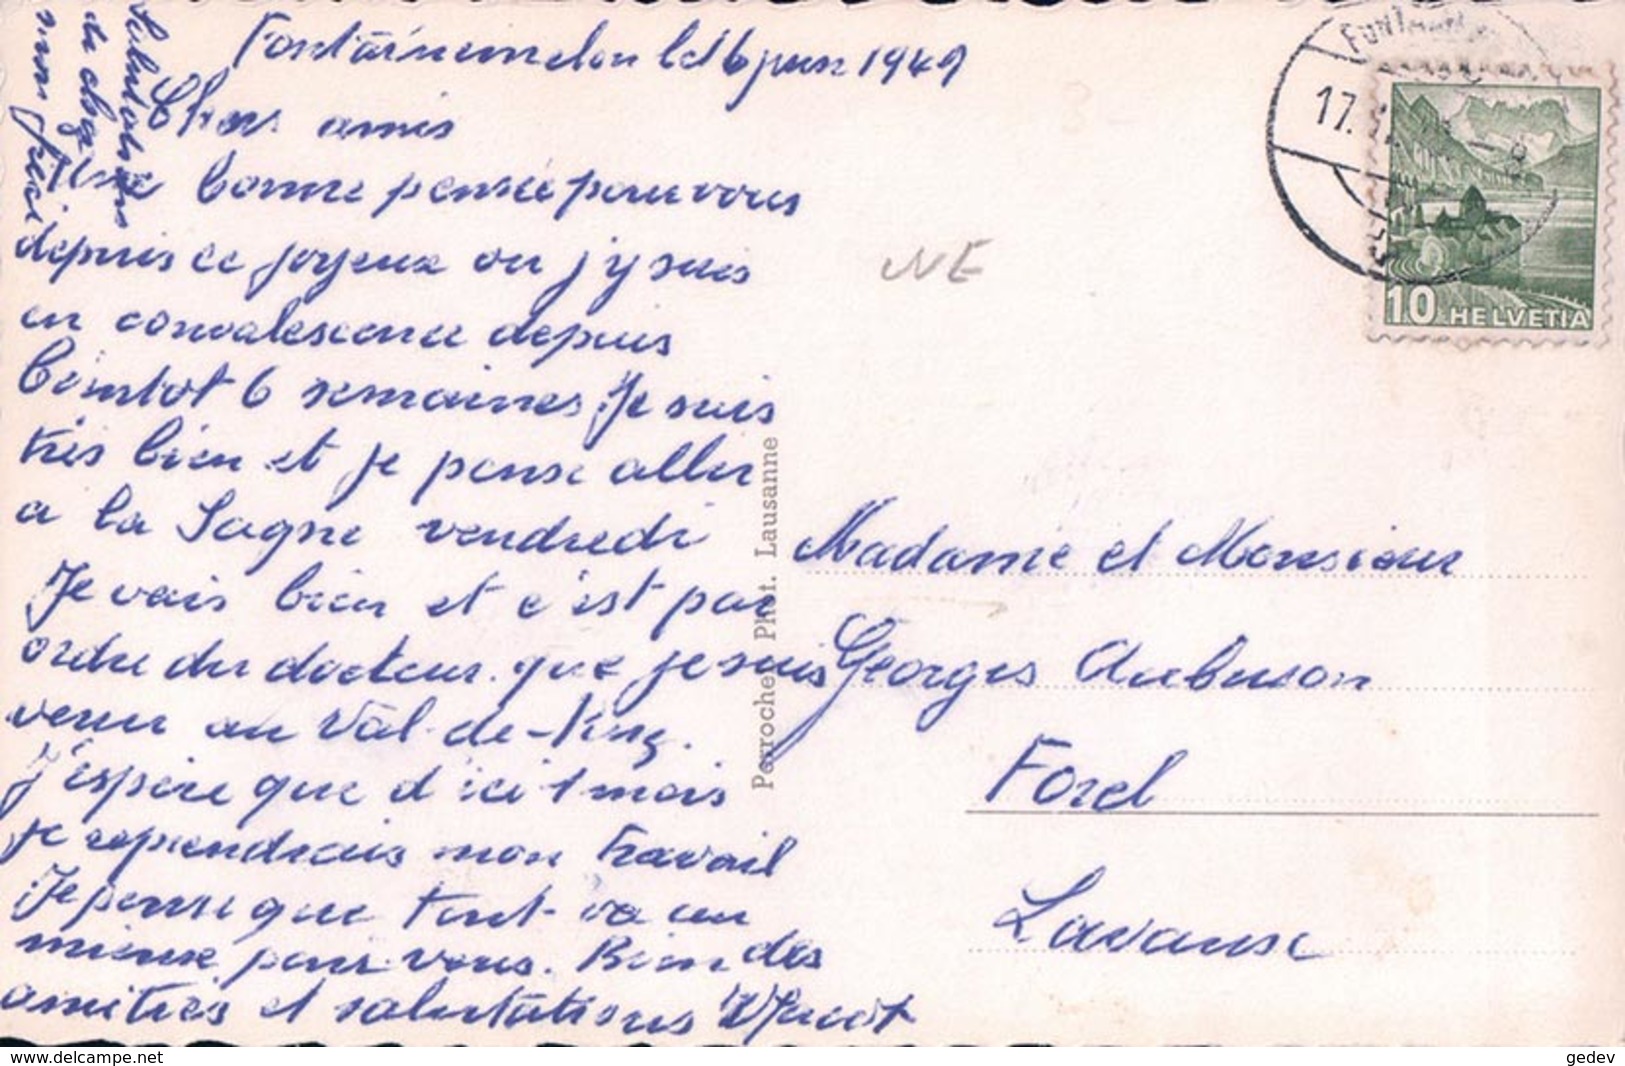 Fontainemelon le 16 juin 1949
Chers amis
Une bonne pensée pour vous
depuis ce joyeux ou j'y suis
en convalescence depuis
bientot 6 semaines. Je suis
très bien et je pense aller
a la Sagne vendredi
Je vais bien et c'est par
ordre du docteur que je suis
venu au Val-de-Ruz.
J'espère que d'ici 1 mois
je reprendrais mon travail
Je pense que tout va au
mieux pour vous. Bien des
amitiés et salutations
Salutations
de chez
NE
Perrochet Phot. Lausanne
17.
10 HELVETIA
Madame et Monsieur
Georges Aubuson
Forel
Lavause
delcampe.net
gedev